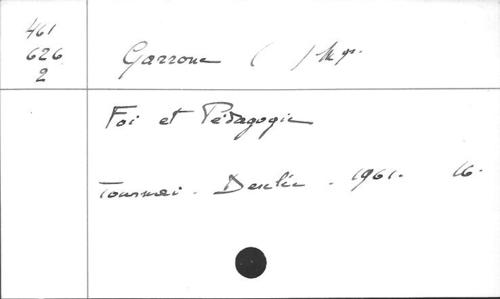 461
626
2
Garrone ( ) Mgr.
Foi et Pédagogie
Tournai. Desclée. 1961. 16.